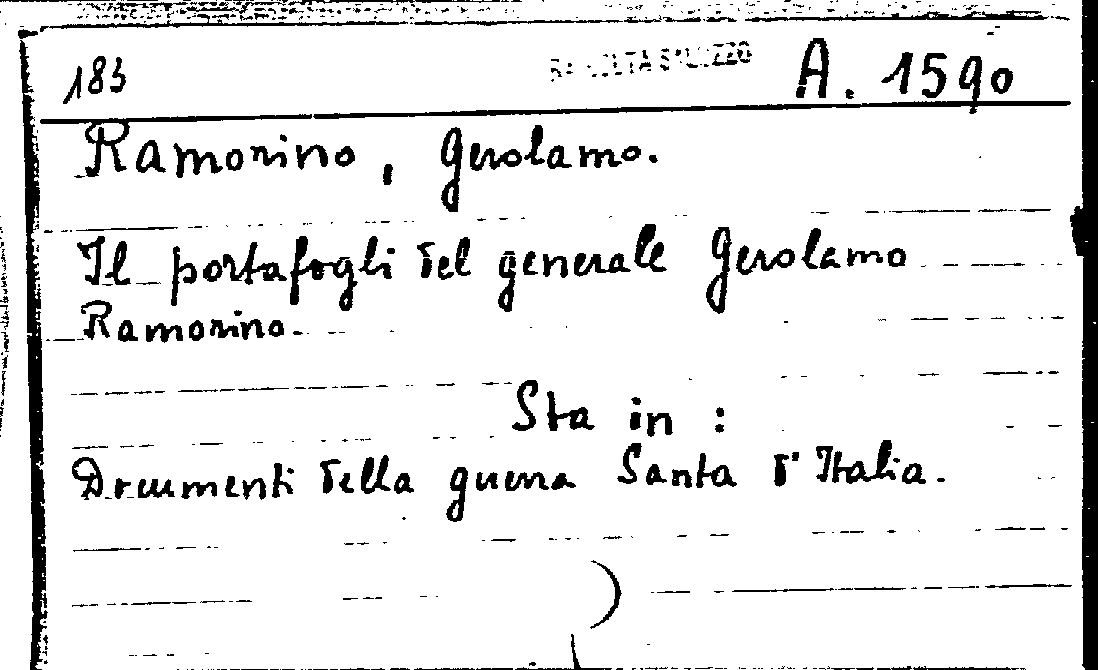 183 RACCOLTA SALUZZO A. 1590
Ramorino, Gerolamo.
Il portafogli del generale Gerolamo
Ramorino.
Sta in :
Documenti della guerra Santa d'Italia.